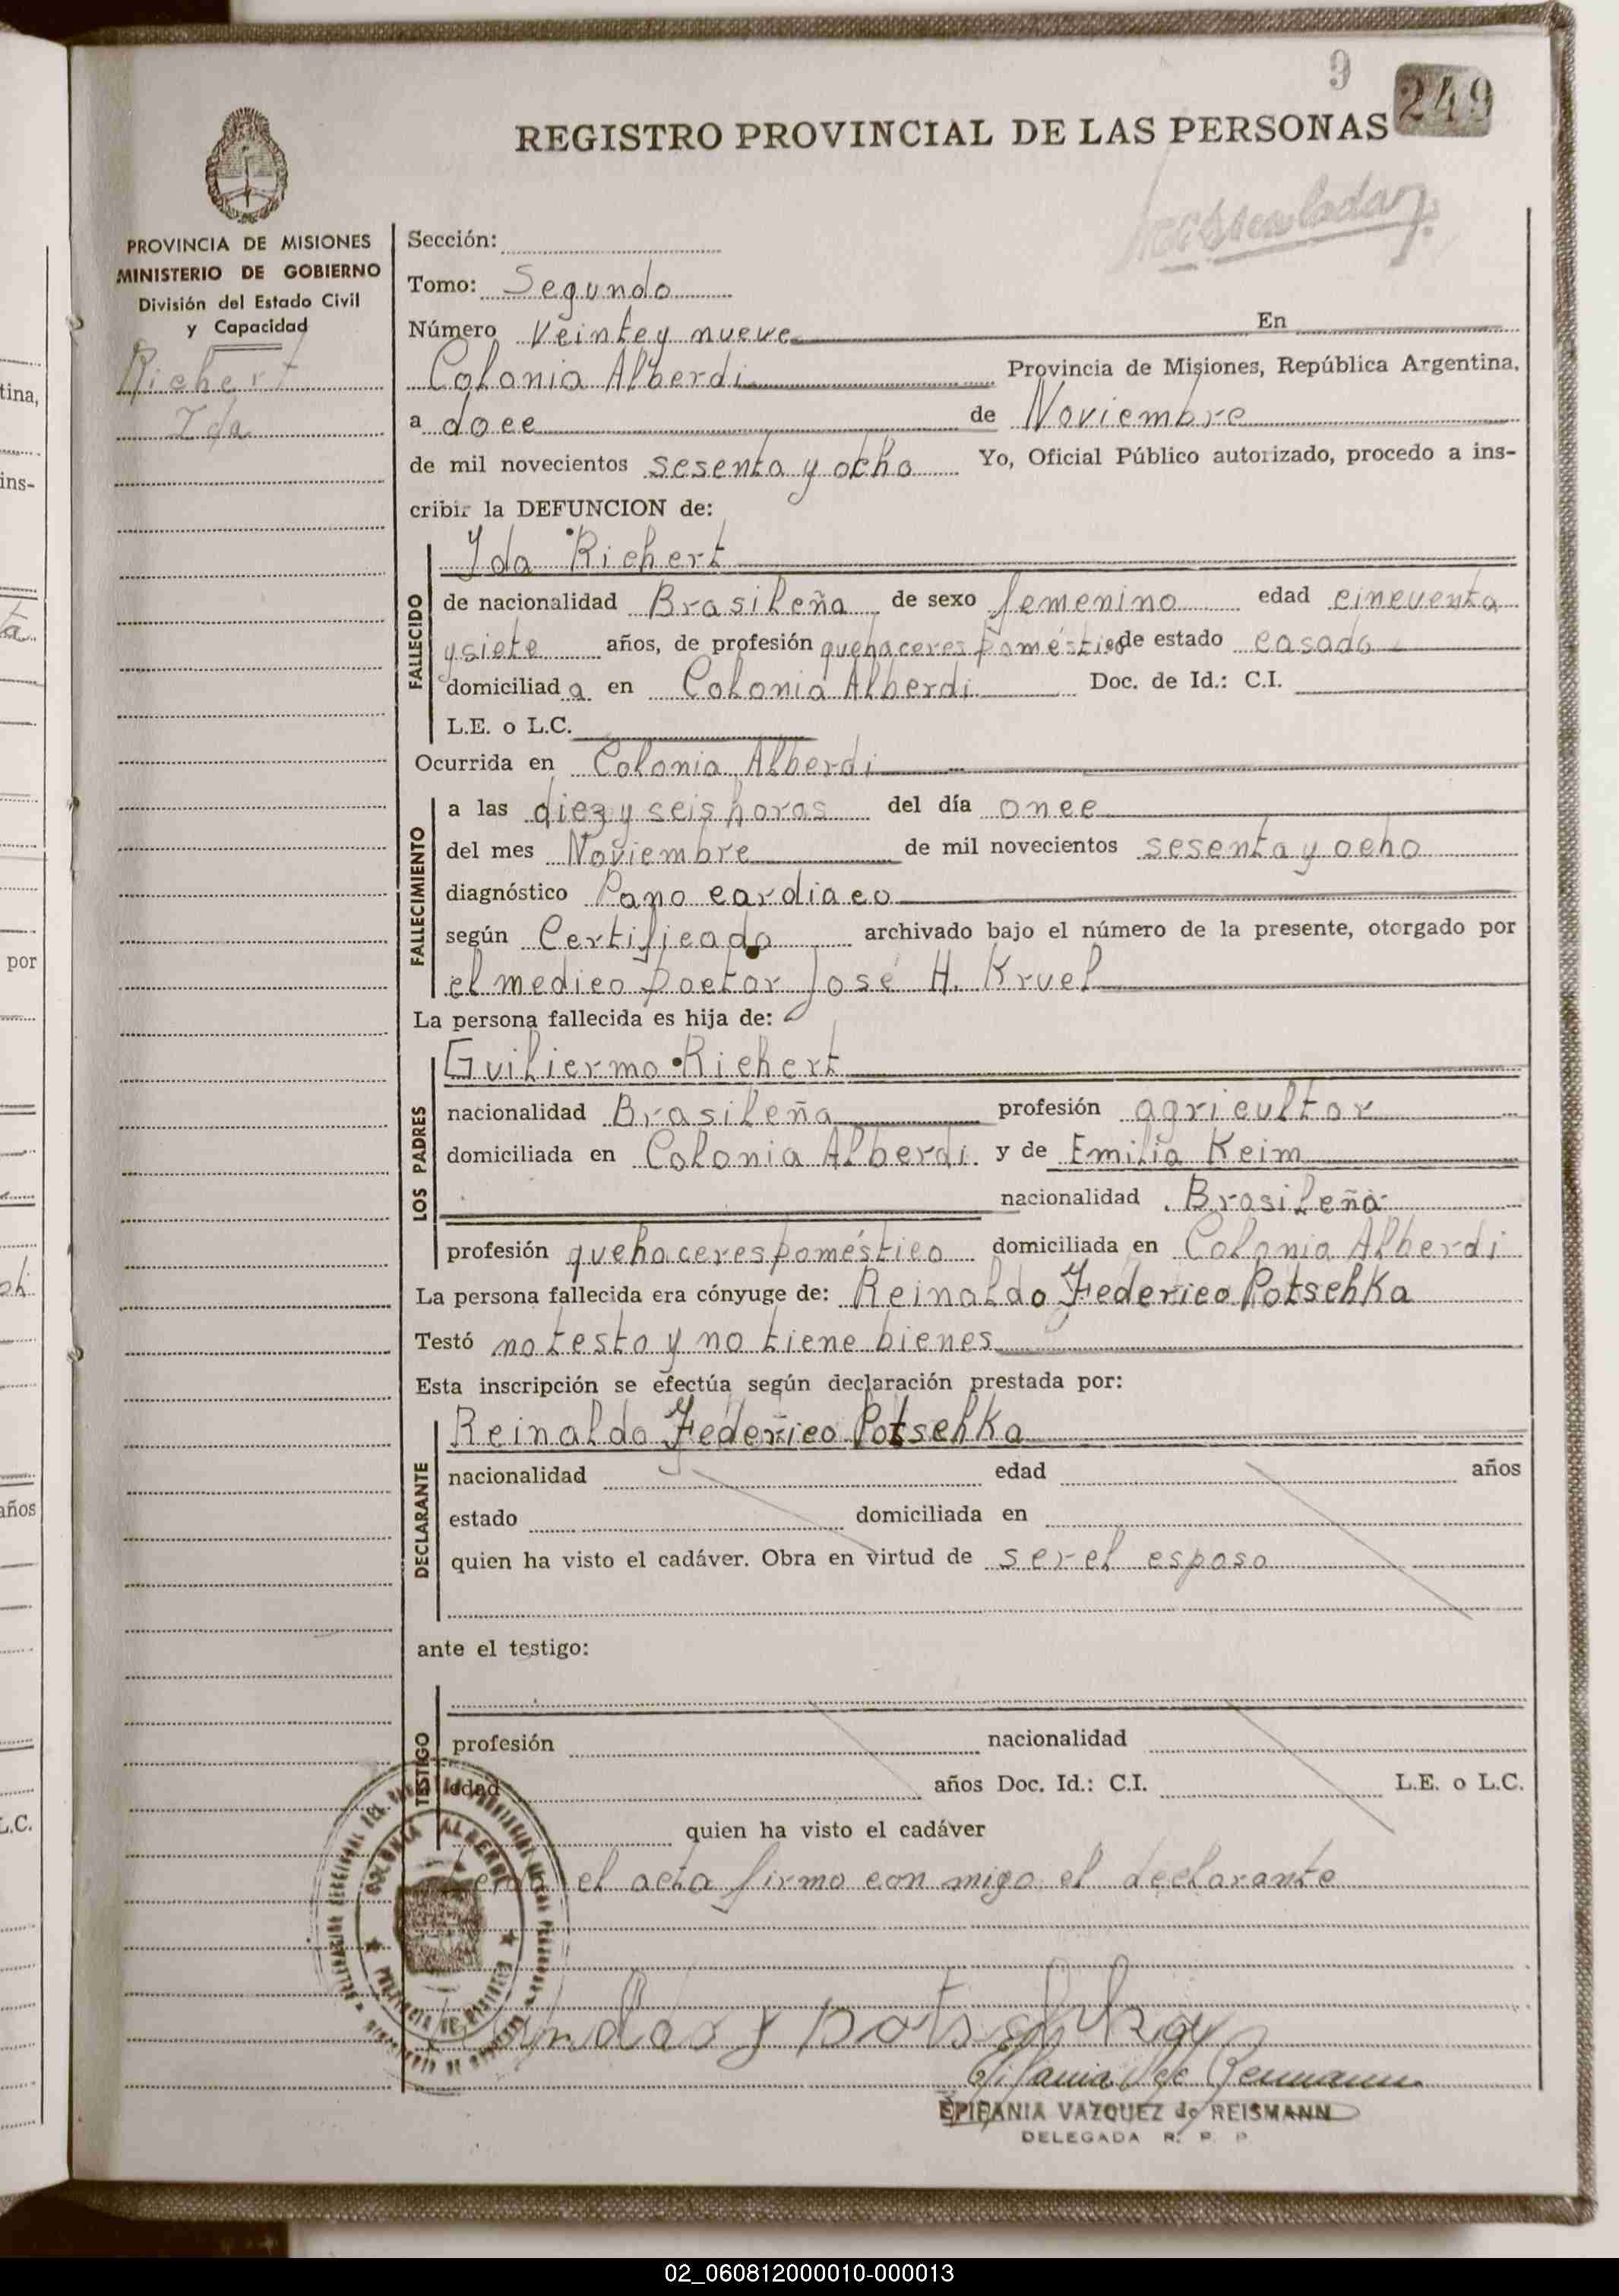 9
249
REGISTRO PROVINCIAL DE LAS PERSONAS
PROVINCIA DE MISIONES
MINISTERIO DE GOBIERNO
División del Estado Civil
y Capacidad
Richert
Ida
Sección:
Tomo: Segundo
Número Veinte y nueve En
Colonia Alberdi Provincia de Misiones, República Argentina,
a doce de Noviembre
de mil novecientos sesenta y ocho Yo, Oficial Público autorizado, procedo a ins-
cribir la DEFUNCION de:
FALLECIDO
Ida Richert
de nacionalidad Brasileña de sexo femenino edad cincuenta
y siete años, de profesión quehaceres Doméstico de estado casada
domiciliad a en Colonia Alberdi Doc. de Id.: C.I.
L.E. o L.C.
Ocurrida en Colonia Alberdi
FALLECIMIENTO
a las diez y seis horas del día once
del mes Noviembre de mil novecientos sesenta y ocho
diagnóstico Pano cardiaco
según Certificado archivado bajo el número de la presente, otorgado por
el medico Doctor José H. Kruel
La persona fallecida es hija de:
LOS PADRES
Guiliermo Richert
nacionalidad Brasileña profesión agricultor
domiciliada en Colonia Alberdi y de Emilia Keim
nacionalidad Brasileña
profesión quehaceres Doméstico domiciliada en Colonia Alberdi
La persona fallecida era cónyuge de: Reinaldo Federico Potschka
Testó no testo y no tiene bienes
Esta inscripción se efectúa según declaración prestada por:
DECLARANTE
Reinaldo Federico Potschka
nacionalidad edad años
estado domiciliada en
quien ha visto el cadáver. Obra en virtud de ser el esposo
ante el testigo:
TESTIGO
profesión nacionalidad
edad años Doc. Id.: C.I. L.E. o L.C.
quien ha visto el cadáver
el acta firmo con migo el declarante
COLONIA ALBERDI
potschka
EPIFANIA VAZQUEZ de REISMANN
DELEGADA R. P. P
tina,
ins-
por
años
L.C.
02_060812000010-000013